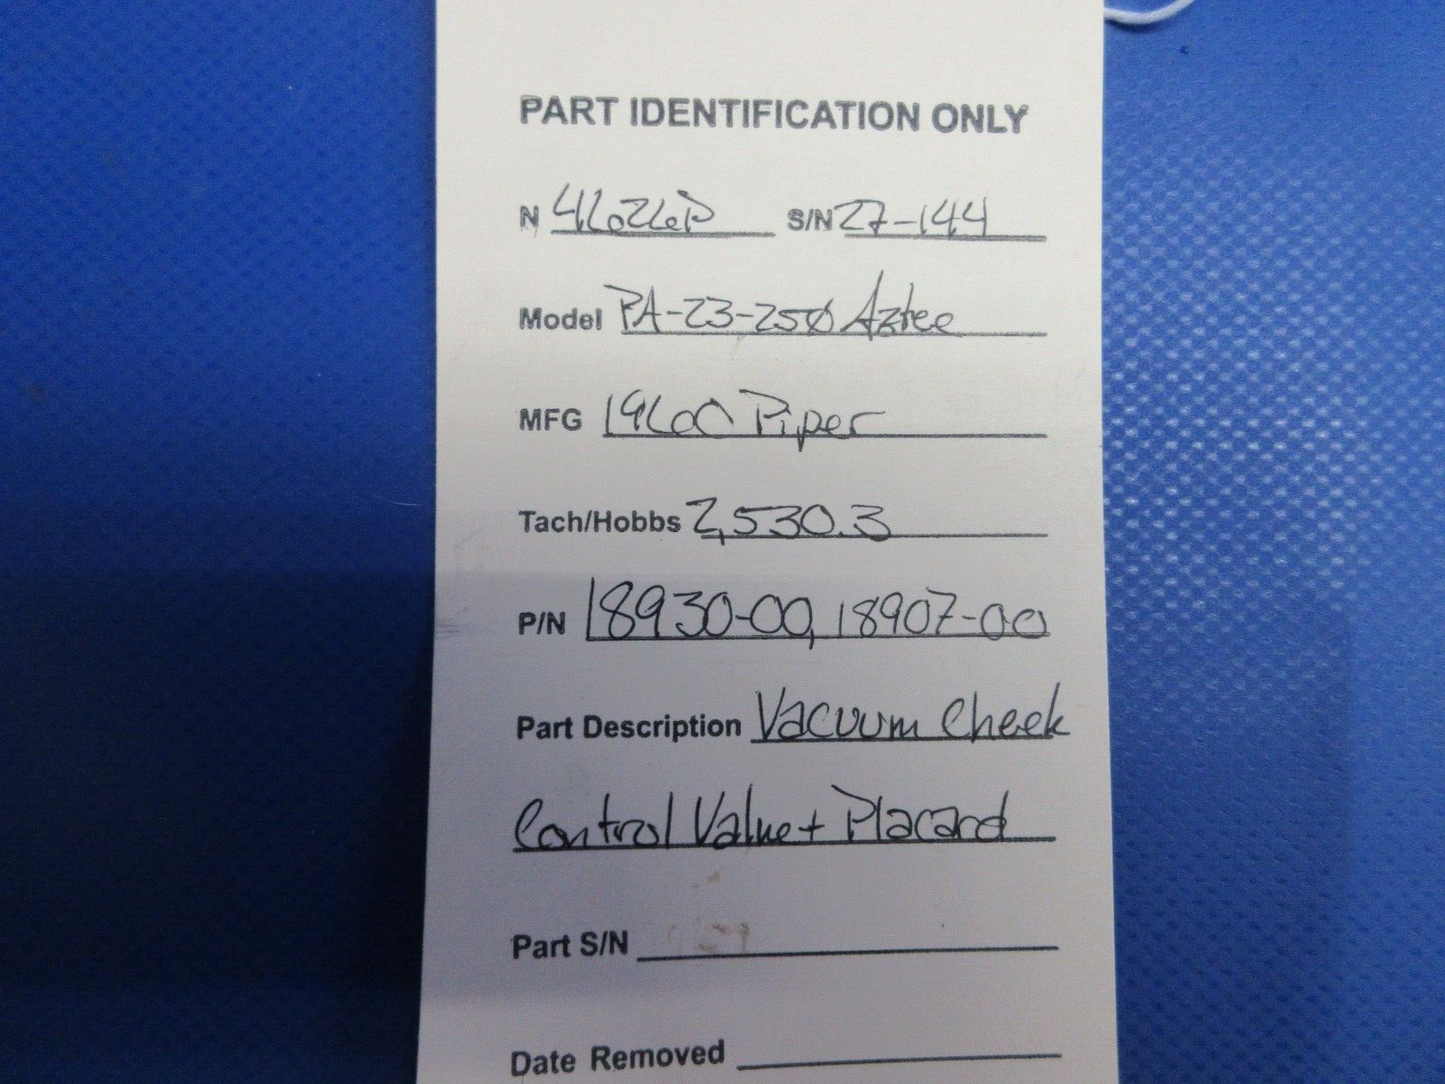 PART IDENTIFICATION ONLY
N 4626P S/N 27-144
Model PA-23-250 Aztec
MFG 1960 Piper
Tach/Hobbs 2,530.3
P/N 18930-00, 18907-00
Part Description Vacuum Check
Control Valve + Placard
Part S/N
Date Removed